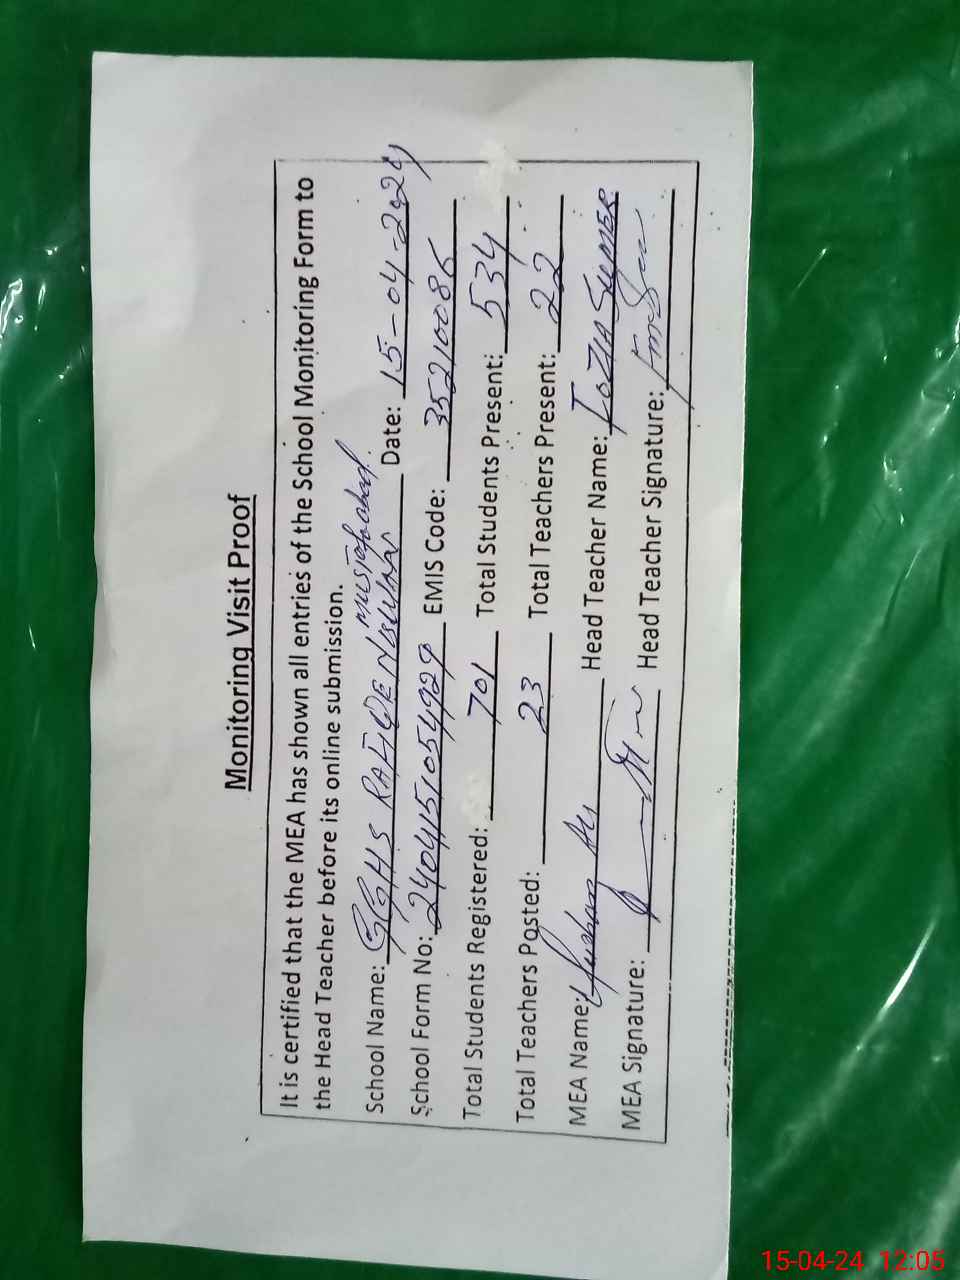 Monitoring Visit Proof
It is certified that the MEA has shown all entries of the School Monitoring Form to
the Head Teacher before its online submission.
School Name: GGHS RAFIQE NISWAAN mustafabad. Date: 15-04-2024
School Form No: 2404151054929 EMIS Code: 35210086
Total Students Registered: 701 Total Students Present: 534
Total Teachers Posted: 23 Total Teachers Present: 22
MEA Name: Head Teacher Name: FOZIA SUMER
MEA Signature: Head Teacher Signature:
15-04-24 12:05